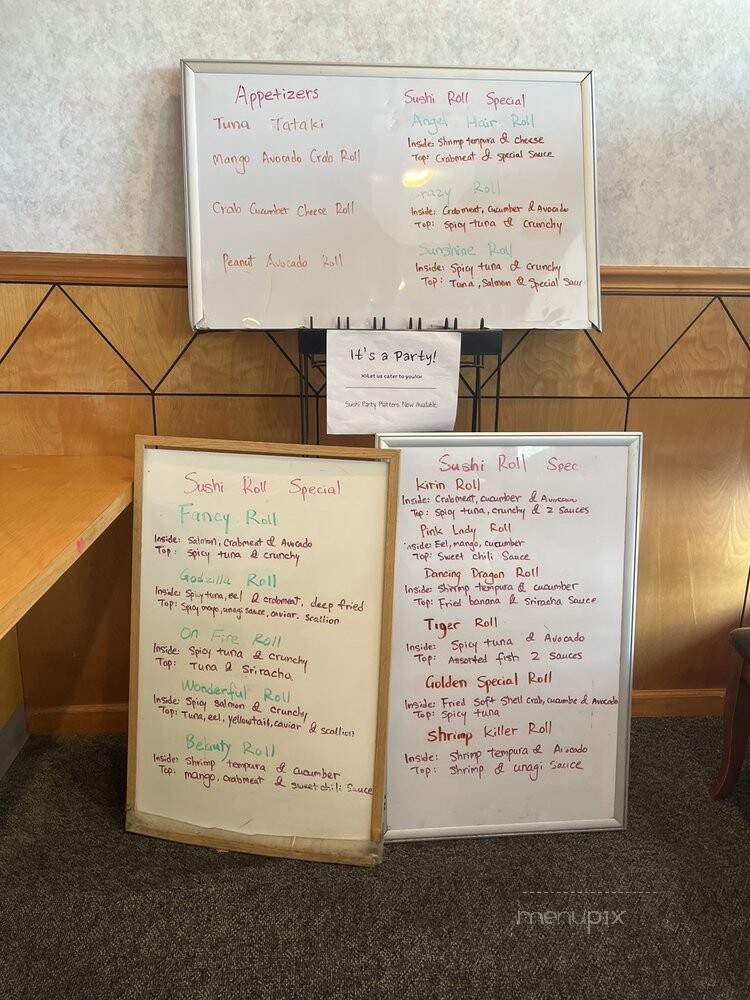 Appetizers
Tuna Tataki
Mango Avocado Crab Roll
Crab Cucumber Cheese Roll
Peanut Avocado Roll
Sushi Roll Special
Angel Hair Roll
Inside: Shrimp tempura & cheese
Top: Crabmeat & special Sauce
razy Roll
Inside: Crabmeat, Cucumber & Avocado
Top: Spicy tuna & crunchy
Sunshine Roll
Inside: Spicy tuna & crunchy
Top: Tuna, Salmon & Special Saur
It's a Party!
>>Let us cater to you!<<
Sushi Party Platters Now Available
Sushi Roll Special
Fancy Roll
Inside: Salmon, Crabmeat & Avocado
Top: Spicy tuna & crunchy
Godzilla Roll
Inside: Spicy tuna, eel & crabmeat, deep fried
Top: Spicy mayo, unagi sauce, caviar. scallion
On Fire Roll
Inside: Spicy tuna & crunchy
Top: Tuna & Sriracha
Wonderful Roll
Inside: Spicy salmon & crunchy
Top: Tuna, eel, yellowtail, caviar & scallion
Beauty Roll
Inside: Shrimp tempura & cucumber
Top: mango, crabmeat & sweet chili Sauce
Sushi Roll Spec
Kirin Roll
Inside: Crabmeat, cucumber & Avocado
Top: Spicy tuna, crunchy & 2 sauces
Pink Lady Roll
Inside: Eel, mango, cucumber
Top: Sweet chili Sauce
Dancing Dragon Roll
Inside: Shrimp tempura & cucumber
Top: Fried banana & Sriracha Sauce
Tiger Roll
Inside: Spicy tuna & Avocado
Top: Assorted fish 2 sauces
Golden Special Roll
Inside: Fried Soft Shell crab, cucumbe & Avocado
Top: Spicy tuna
Shrimp Killer Roll
Inside: Shrimp tempura & Avocado
Top: Shrimp & unagi Sauce
menupix